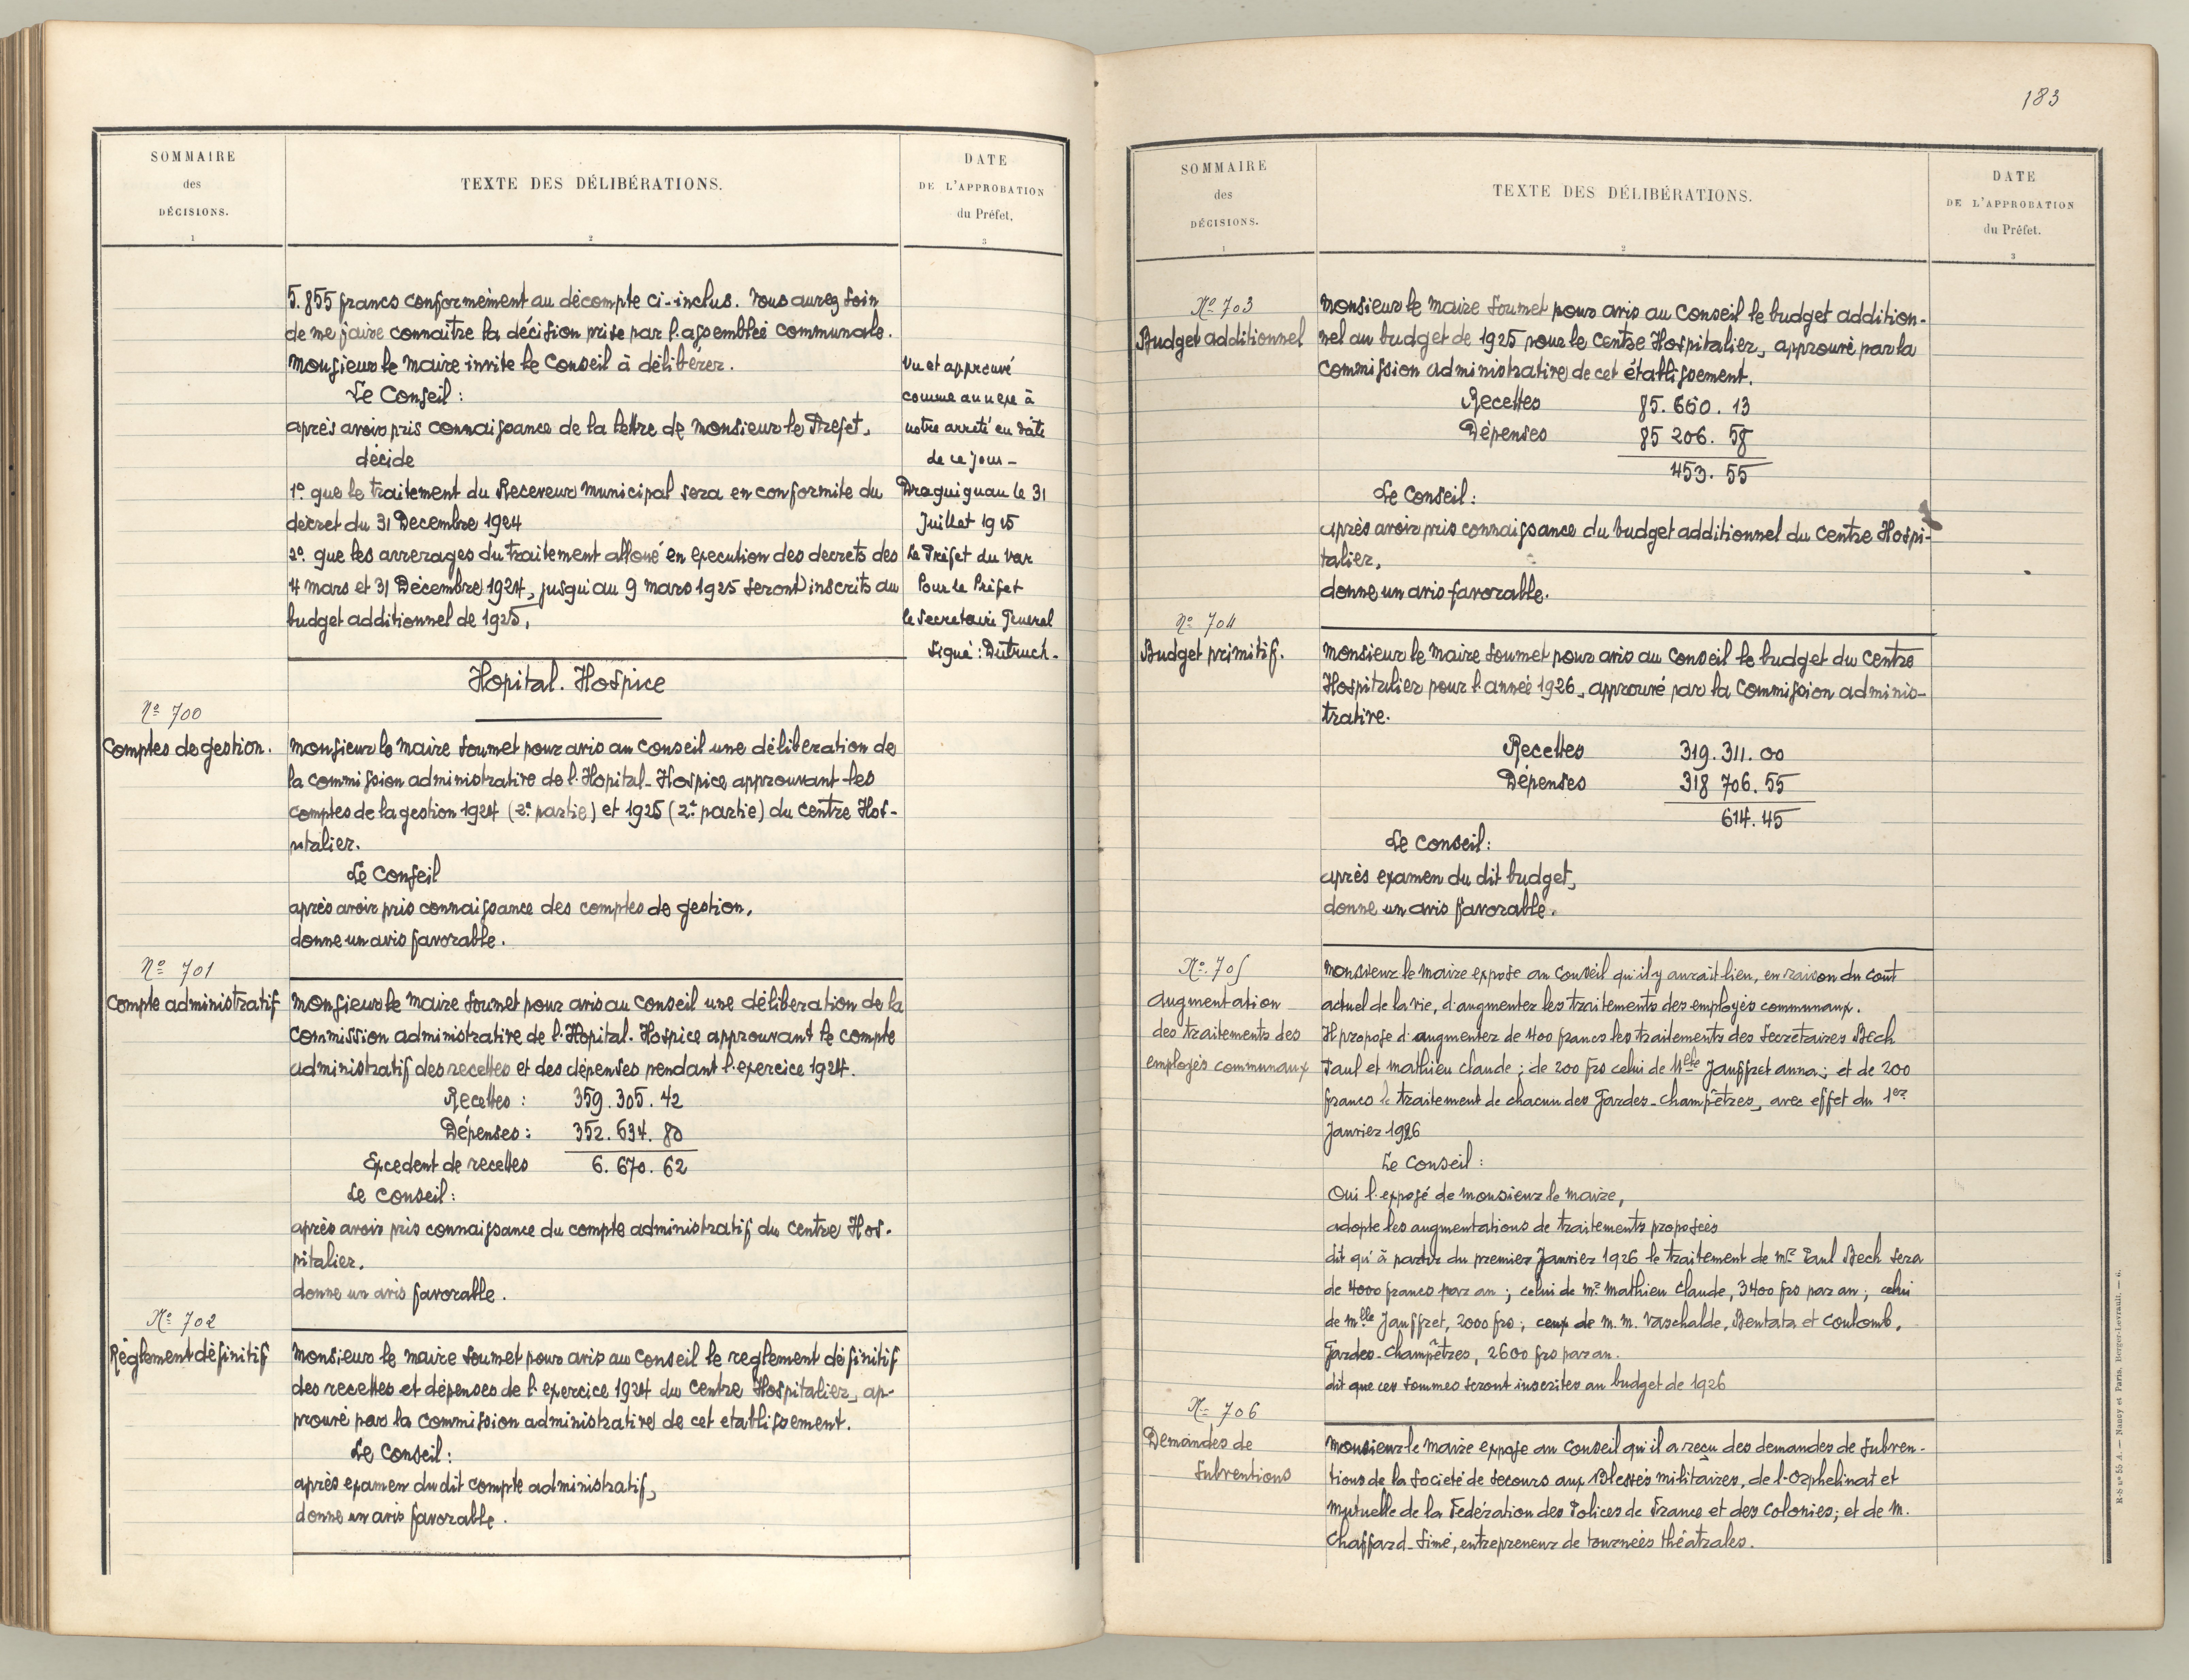 SOMMAIRE
des
DÉCISIONS.
1
TEXTE DES DÉLIBÉRATIONS.
2
DATE
DE L'APPROBATION
du Préfet.
3
5.855 francs conformément au décompte ci-inclus. Vous aurez soin
de me faire connaître la décision prise par l'assemblée communale.
Monsieur le Maire invite le Conseil à délibérer.
Le Conseil :
après avoir pris connaissance de la lettre de Monsieur le Préfet,
décide
1º que le traitement du Receveur municipal sera en conformité du
décret du 31 Décembre 1924
2º que les arrerages du traitement alloué en execution des decrets des
4 mars et 31 Décembre 1924, jusqu'au 9 mars 1925 seront inscrits au
budget additionnel de 1925,
Vu et approuvé
comme annexe à
notre arrêté en date
de ce jour -
Draguignan le 31
Juillet 1925
Le Préfet du Var
Pour le Préfet
le Secretaire General
Signé : Dutruch.
Hopital. Hospice
Nº 700
Comptes de gestion.
Monsieur le Maire soumet pour avis au conseil une délibération de
la commission administrative de l'Hopital-Hospice approuvant les
comptes de la gestion 1924 (2e partie) et 1925 (2e partie) du Centre Hos-
pitalier.
Le Conseil
après avoir pris connaissance des comptes de gestion,
donne un avis favorable.
Nº 701
Compte administratif
Monsieur le Maire soumet pour avis au Conseil une délibération de la
Commission administrative de l'Hopital. Hospice approuvant le compte
administratif des recettes et des dépenses pendant l'exercice 1924.
Recettes : 359.305.42
Dépenses : 352.634.80
Excedent de recettes 6.670.62
Le Conseil :
après avoir pris connaissance du compte administratif du Centre Hos.
pitalier.
donne un avis favorable.
Nº 702
Réglement définitif
Monsieur le maire soumet pour avis au Conseil le reglement définitif
des recettes et dépenses de l'exercice 1924 du Centre Hospitalier, ap-
prouvé par la commission administrative de cet etablissement.
Le Conseil :
après examen du dit compte administratif,
donne un avis favorable.
183
SOMMAIRE
des
DÉCISIONS.
1
TEXTE DES DÉLIBÉRATIONS.
2
DATE
DE L'APPROBATION
du Préfet.
3
Nº 703
Budget additionnel
Monsieur le Maire soumet pour avis au Conseil le budget addition-
nel au budget de 1925 pour le Centre Hospitalier, approuvé par la
Commission administrative de cet établissement.
Recettes 85.660.13
Dépenses 85 206.58
453.55
Le Conseil :
après avoir pris connaissance du budget additionnel du Centre Hospi-
talier,
donne un avis favorable.
Nº 704
Budget primitif.
Monsieur le Maire soumet pour avis au Conseil le budget du Centre
Hospitalier pour l'année 1926, approuvé par la Commission adminis-
trative.
Recettes 319.311.00
Dépenses 318 706.55
614.45
Le Conseil :
après examen du dit budget,
donne un avis favorable.
Nº 705
Augmentation
des traitements des
employés communaux
Monsieur le Maire expose au Conseil qu'il y aurait lieu, en raison du cout
actuel de la vie, d'augmenter les traitements des employés communaux.
Il propose d'augmenter de 400 francs les traitements des Secrétaires Bech
Paul et Mathieu Claude ; de 200 frs celui de Melle Jauffret anna ; et de 200
francs le traitement de chacun des Gardes-Champêtres, avec effet du 1er
Janvier 1926
Le Conseil :
Oui l'exposé de Monsieur le Maire,
adopte les augmentations de traitements proposées
dit qu'à partir du premier Janvier 1926 le traitement de Mr Paul Bech sera
de 4000 francs par an ; celui de Mr Mathieu Claude, 3400 frs par an ; celui
de Mlle Jauffret, 2000 frs ; ceux de M.M. Vaschalde, Bentata et Coulomb,
Gardes-Champêtres, 2600 frs par an.
dit que ces sommes seront inscrites au budget de 1926
Nº 706
Demandes de
Subventions
Monsieur le Maire expose au Conseil qu'il a reçu des demandes de subven-
tions de la Société de secours aux Blessés militaires, de l'Orphelinat et
Mutuelle de la Fédération des Polices de France et des Colonies ; et de M.
Chaffard-Simé, entrepreneur de tournées théatrales.
R-S Nº 55 A. — Nancy et Paris, Berger-Levrault. — 6.